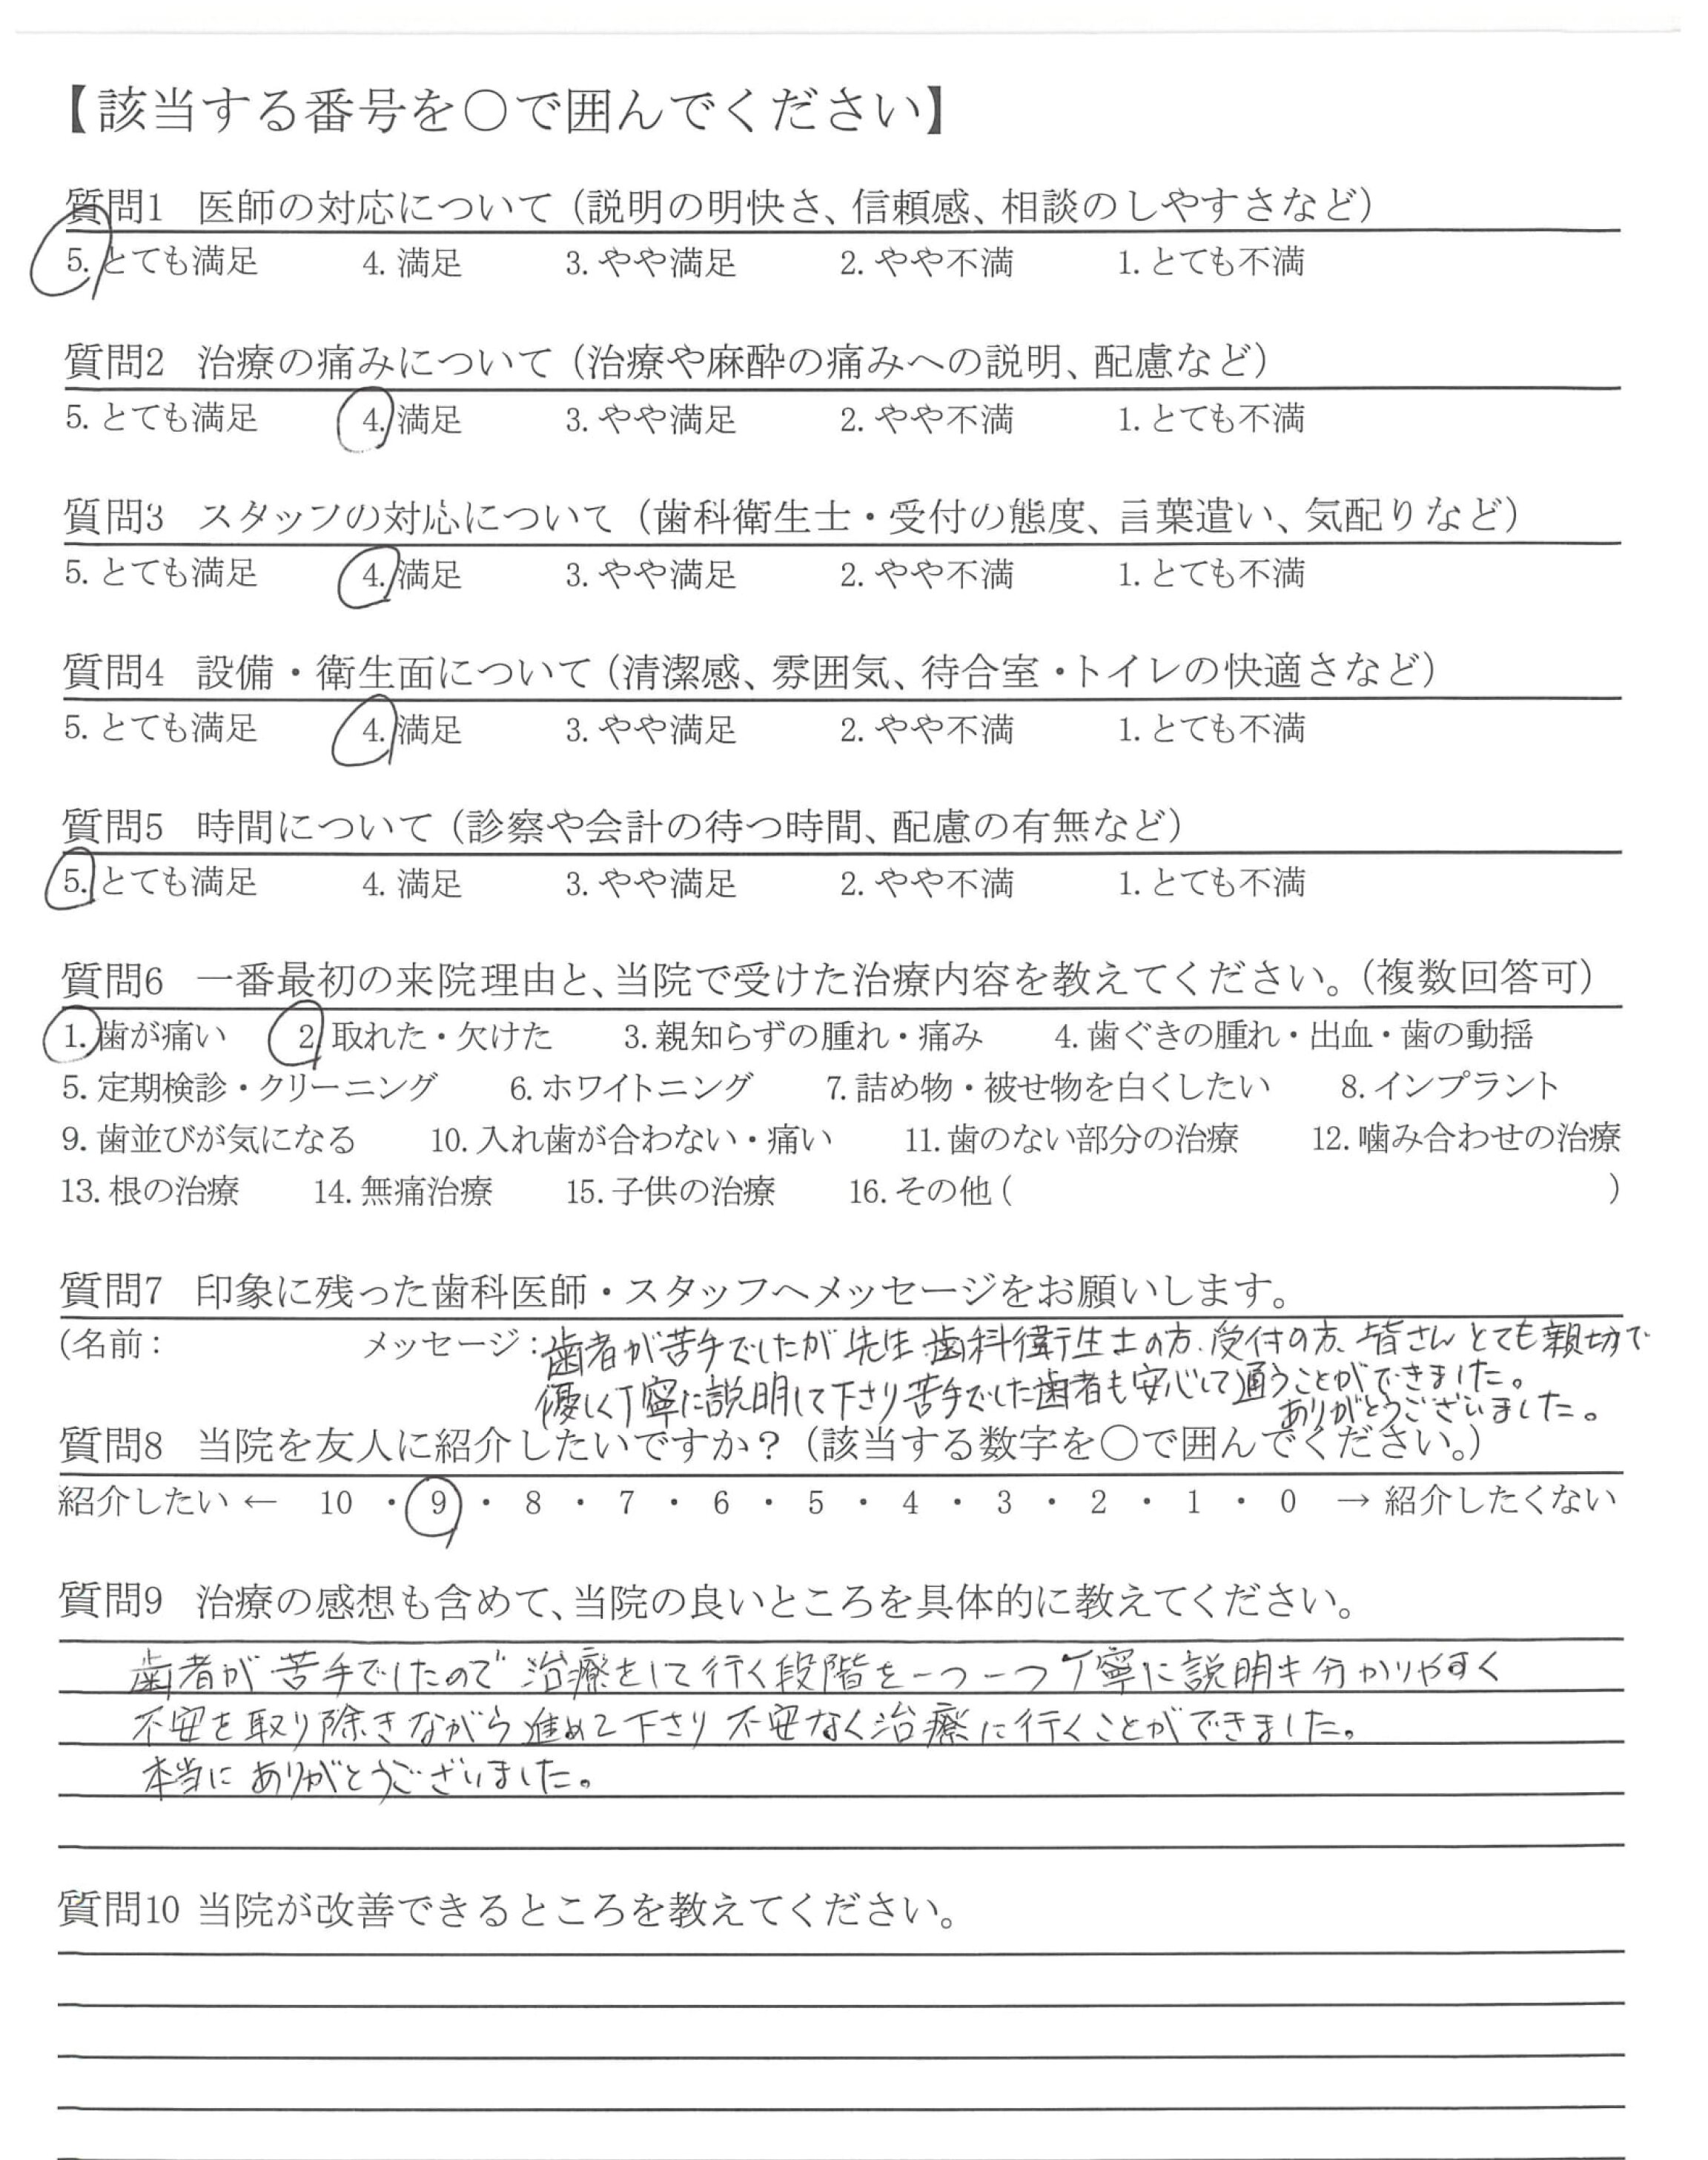 【該当する番号を〇で囲んでください】
質問1 医師の対応について（説明の明快さ、信頼感、相談のしやすさなど）
5. とても満足 4. 満足 3. やや満足 2. やや不満 1. とても不満
質問2 治療の痛みについて（治療や麻酔の痛みへの説明、配慮など）
5. とても満足 4. 満足 3. やや満足 2. やや不満 1. とても不満
質問3 スタッフの対応について（歯科衛生士・受付の態度、言葉遣い、気配りなど）
5. とても満足 4. 満足 3. やや満足 2. やや不満 1. とても不満
質問4 設備・衛生面について（清潔感、雰囲気、待合室・トイレの快適さなど）
5. とても満足 4. 満足 3. やや満足 2. やや不満 1. とても不満
質問5 時間について（診察や会計の待つ時間、配慮の有無など）
5. とても満足 4. 満足 3. やや満足 2. やや不満 1. とても不満
質問6 一番最初の来院理由と、当院で受けた治療内容を教えてください。（複数回答可）
1. 歯が痛い 2. 取れた・欠けた 3. 親知らずの腫れ・痛み 4. 歯ぐきの腫れ・出血・歯の動揺
5. 定期検診・クリーニング 6. ホワイトニング 7. 詰め物・被せ物を白くしたい 8. インプラント
9. 歯並びが気になる 10. 入れ歯が合わない・痛い 11. 歯のない部分の治療 12. 噛み合わせの治療
13. 根の治療 14. 無痛治療 15. 子供の治療 16. その他（ ）
質問7 印象に残った歯科医師・スタッフへメッセージをお願いします。
（名前： メッセージ：歯者が苦手でしたが先生、歯科衛生士の方、受付の方、皆さんとても親切で
優しく丁寧に説明して下さり苦手でした歯者も安心して通うことができました。
ありがとうございました。
質問8 当院を友人に紹介したいですか？（該当する数字を〇で囲んでください。）
紹介したい ← 10 ・ 9 ・ 8 ・ 7 ・ 6 ・ 5 ・ 4 ・ 3 ・ 2 ・ 1 ・ 0 → 紹介したくない
質問9 治療の感想も含めて、当院の良いところを具体的に教えてください。
歯者が苦手でしたので治療をして行く段階を一つ一つ丁寧に説明キ分かりやすく
不安を取り除きながら進めて下さり不安なく治療に行くことができました。
本当にありがとうございました。
質問10 当院が改善できるところを教えてください。